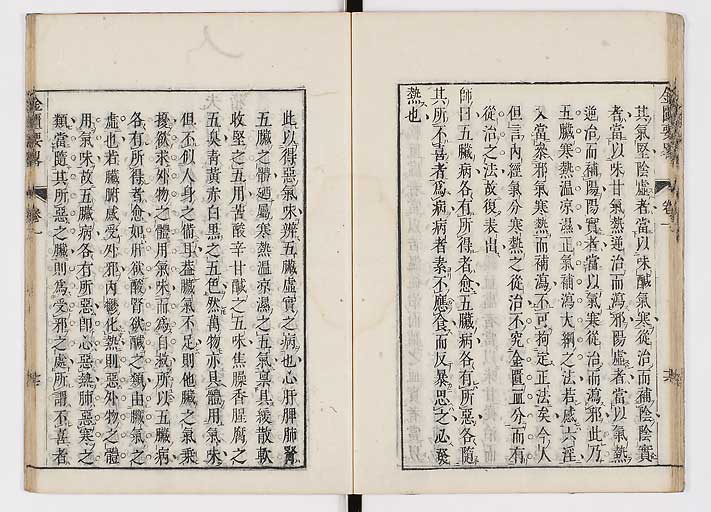 其氣堅陰虛者當以味鹹氣寒從治而補陰陰實
者當以味甘氣熱逆治而瀉邪陽虛者當以氣熱
逆治而補陽陽實者當以氣寒從治而瀉邪此乃
五臟寒熱溫涼濕正氣補瀉大綱之法若感六淫
又當參邪氣寒熱而補瀉不可拘定正法矣今人
但言內經氣分寒熱之從治不究金匱血分而有
從治之法故復表出
師曰五臟病各有所得者愈五臟病各有所惡各隨
其所不喜者為病病者素不應食而反暴思之必發
熱也
金匱要畧
卷一
此以得惡氣味辨五臟虛實之病也心肝脾肺腎
五臟之體廼屬寒熱溫涼濕之五氣稟具緩散軟
收堅之五用苦酸辛甘鹹之五味焦臊香腥腐之
五臭青黃赤白黑之五色然萬物亦具體用氣味
但不似人身之備耳葢臟氣不足則他臟之氣乘
擾欲求外物之體用氣味而為自救所以五臟病
各有所得者愈如肝欲酸腎欲鹹之類由臟氣之
虛也若臟腑感受外邪內鬱化熱則惡外物之體
用氣味故五臟病各有所惡卽心惡熱肺惡寒之
類當隨其所惡之臟則為受邪之處所謂不喜者
金匱要畧
卷一